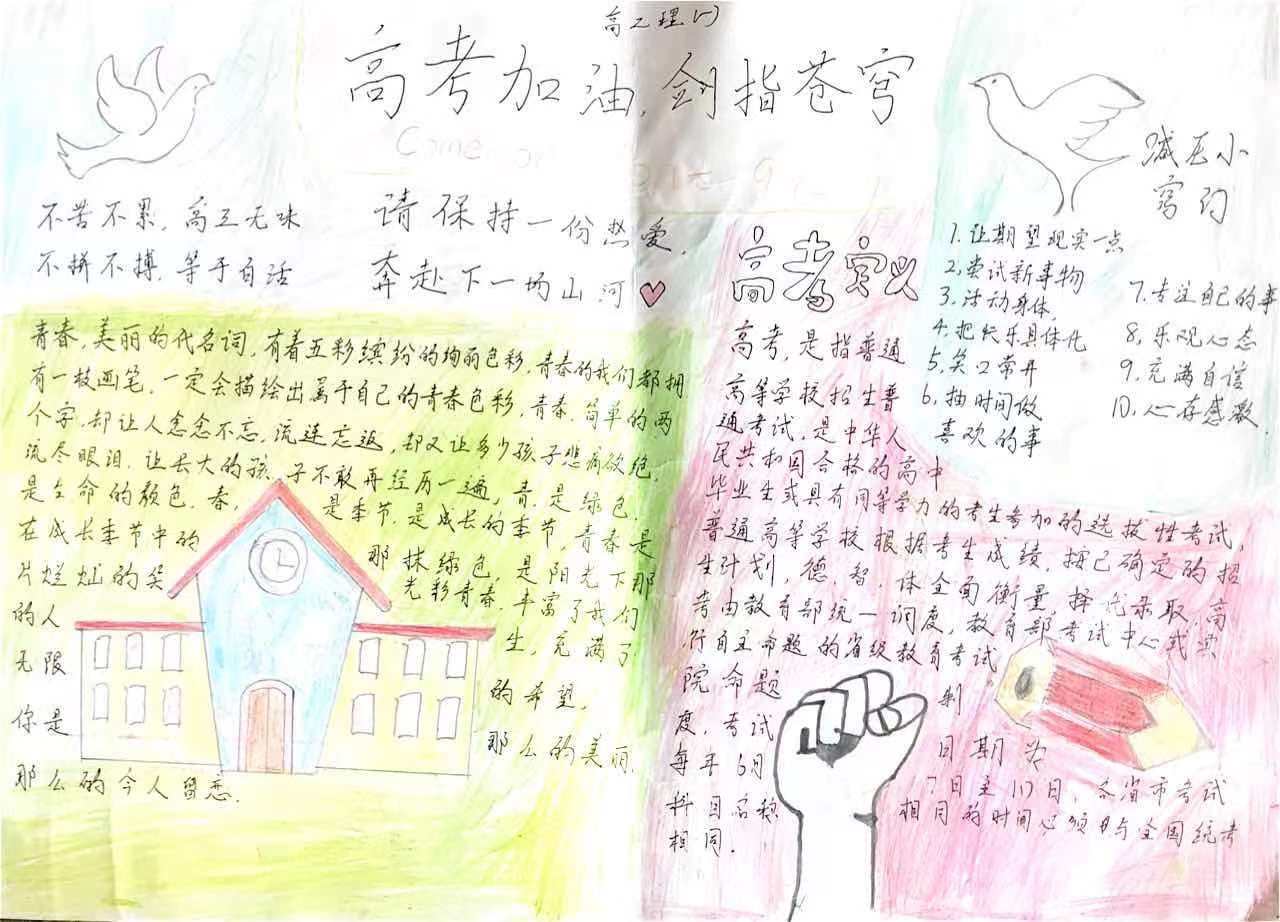 高二理(7)
高考加油,剑指苍穹
Come on
不苦不累,高三无味
不拼不搏,等于白活
请保持一份热爱,
奔赴下一场山河
减压小
窍门
1.让期望现实一点
2.尝试新事物
3.活动身体,
4.把快乐具体化
5.笑口常开
6.抽时间做
喜欢的事
7.专注自己的事
8.乐观心态
9.充满自信
10.心存感激.
青春,美丽的代名词,有着五彩缤纷的绚丽色彩,青春的我们都拥
有一枝画笔,一定会描绘出属于自己的青春色彩,青春,简单的两
个字,却让人念念不忘,流连忘返,却又让多少孩子悲痛欲绝,
流尽眼泪,让长大的孩子不敢再经历一遍,青,是绿色,
是生命的颜色.春,是季节,是成长的季节,青春是
在成长季节中的那抹绿色,是阳光下那
片烂灿的笑光彩青春.丰富了我们
的人生,充满了
无限的希望,
你是那么的美丽,
那么的令人留恋.
高考定义
高考,是指普通
高等学校招生普
通考试,是中华人
民共和国合格的高中
毕业生或具有同等学力的考生参加的选拔性考试,
普通高等学校根据考生成绩,按已确定的招
生计划,德,智,体全面衡量,择优录取,高
考由教育部统一调度,教育部考试中心或实
行自主命题的省级教育考试
院命题制
度,考试日期为
每年6月7日至10日,各省市考试
科目名称相同的时间必须与全国统考
相同.